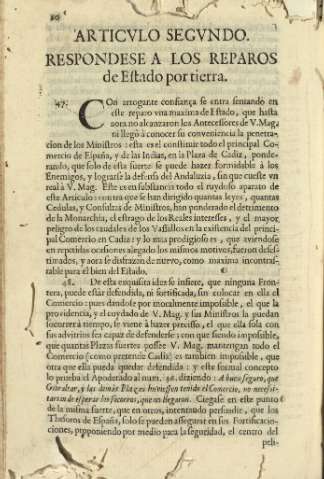 20
ARTICVLO SEGVNDO.
RESPONDESE A LOS REPAROS
de Estado por tierra.
47. CON arrogante confiança se entra sentando en
este reparo vna maxima de Estado, que hasta
aora no alcançaron los Antecessores de V. Mag.
ni llegò à conocer su conveniencia la penetra-
cion de los Ministros: esta es el constituir todo el principal Co-
mercio de España, y de las Indias, en la Plaza de Cadiz, ponde-
rando, que solo de esta suerte se puede hazer formidable à los
Enemigos, y lograrse la defensa del Andaluzia, sin que cueste vn
real à V. Mag. Este es en substancia todo el ruydoso aparato de
este Articulo: contra que se han dirigido quantas leyes, quantas
Cedulas, y Consultas de Ministros, han ponderado el detrimento
de la Monarchia, el estrago de los Reales interesses, y el mayor
peligro de los caudales de los Vassallos en la existencia del princi-
pal Comercio en Cadiz: y lo mas prodigioso es, que aviendose
en repetidas ocasiones alegado los mismos motivos, fueron deses-
timados, y aora se disfrazan de nuevo, como maxima incontras-
table para el bien del Estado.
48. De esta exquisita idèa se infiere, que ninguna Fron-
tera, puede estàr defendida, ni fortificada, sin colocar en ella el
Comercio: pues dandose por moralmente impossible, el que la
providencia, y el cuydado de V. Mag. y sus Ministros la puedan
socorrer à tiempo, se viene à hazer precisso, el que ella sola con
sus advitrios sea capaz de defenderse; con que siendo impossible,
que quantas Plazas fuertes possee V. Mag. mantengan todo el
Comercio (como pretende Cadiz) es tambien impossible, que
otra que ella pueda quedar defendida: y este formal concepto
lo prueba el Apoderado al num. 98. diziendo: A buen seguro, que
Gibraltar, y las demàs Plazas huviessen tenido el Comercio, no necesi-
taran de esperar los socorros, que no llegaron. Ciegase en este punto
de la misma suerte, que en otros, intentando persuadir, que los
Thesoros de España, solo se pueden assegurar en sus Fortificacio-
ciones, proponiendo por medio para la seguridad, el centro del
peli-